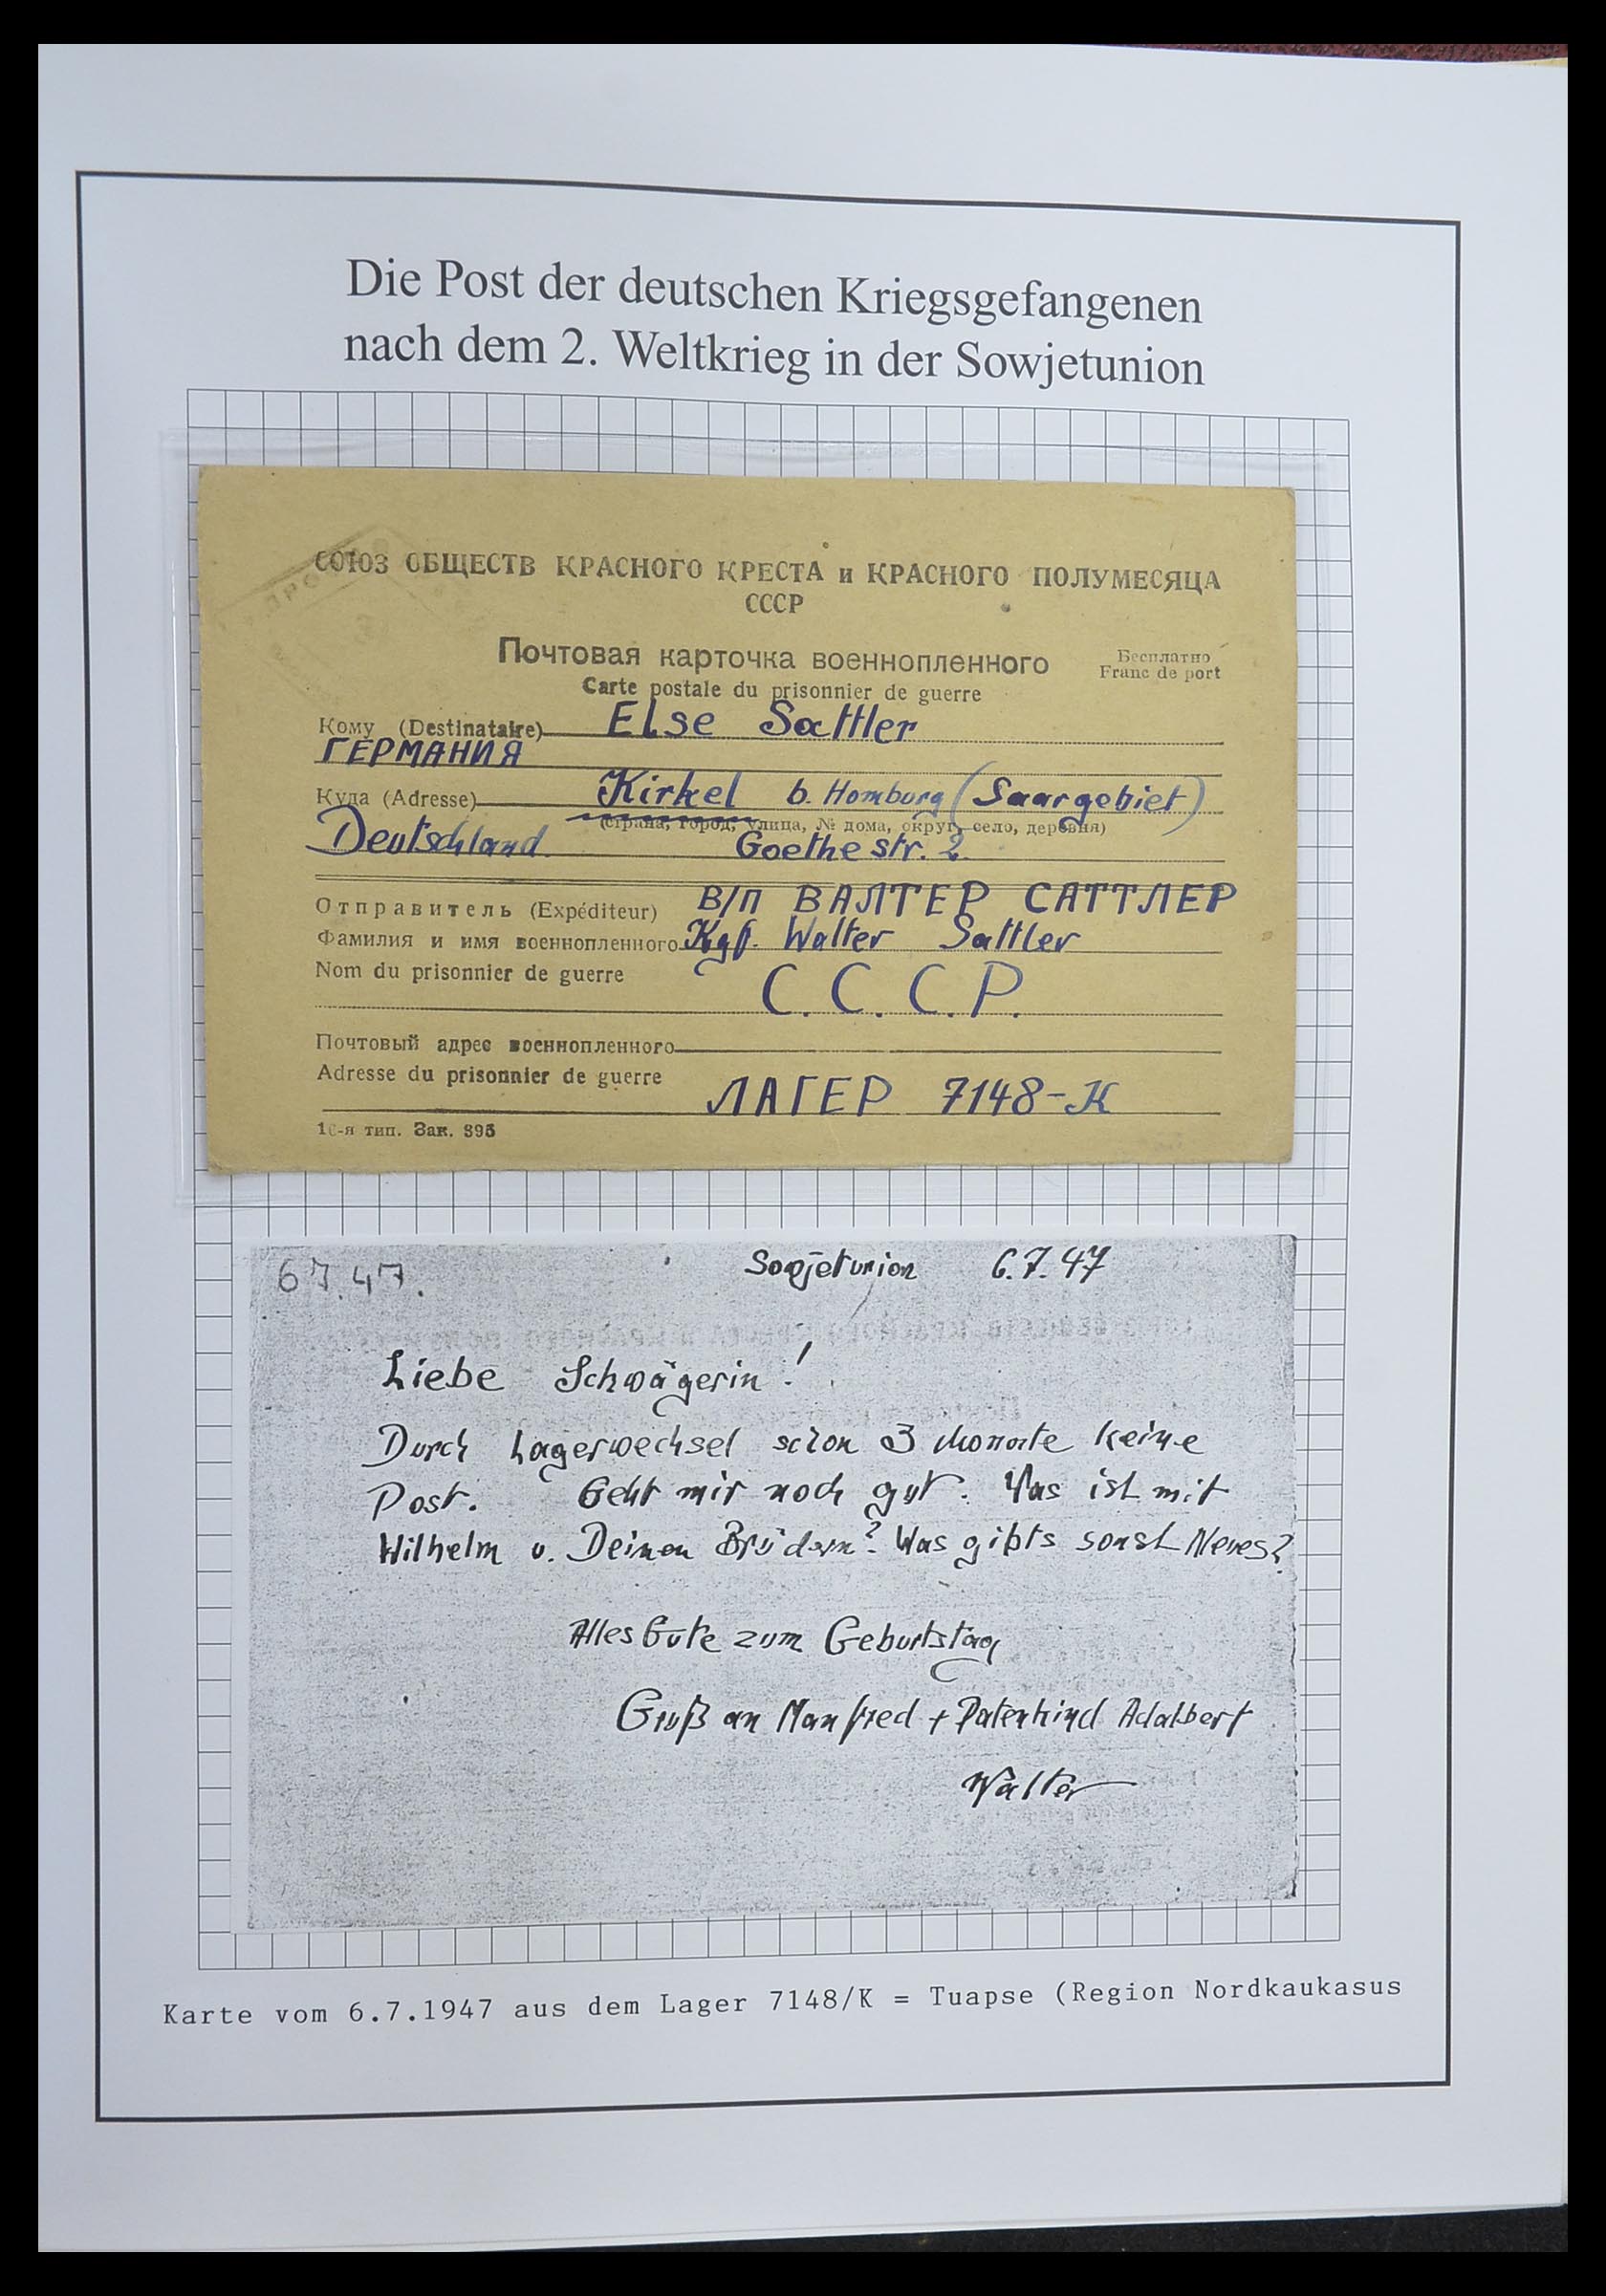 Die Post der deutschen Kriegsgefangenen
nach dem 2. Weltkrieg in der Sowjetunion
СОЮЗ ОБЩЕСТВ КРАСНОГО КРЕСТА и КРАСНОГО ПОЛУМЕСЯЦА
СССР
Почтовая карточка военнопленного
Бесплатно
Franc de port
Carte postale du prisonnier de guerre
Кому (Destinataire) Else Sattler
ГЕРМАНИЯ
Куда (Adresse) Kirkel b. Homburg (Saargebiet)
(страна, город, улица, № дома, округ, село, деревня)
Deutschland Goethestr. 2
Отправитель (Expéditeur) В/П ВАЛТЕР САТТЛЕР
Фамилия и имя военнопленного Kgf. Walter Sattler
Nom du prisonnier de guerre
С.С.С.Р.
Почтовый адрес военнопленного
Adresse du prisonnier de guerre
ЛАГЕР 7148-К
16-я тип. Зак. 395
67.47. Sowjetunion 6.7.47
Liebe Schwägerin!
Durch Lagerwechsel schon 3 Monate keine
Post. Geht mir noch gut. Was ist mit
Wilhelm u. Deinen Brüdern? Was gibts sonst Neues?
Alles Gute zum Geburtstag
Gruß an Manfred + Patenkind Adalbert
Walter
Karte vom 6.7.1947 aus dem Lager 7148/K = Tuapse (Region Nordkaukasus